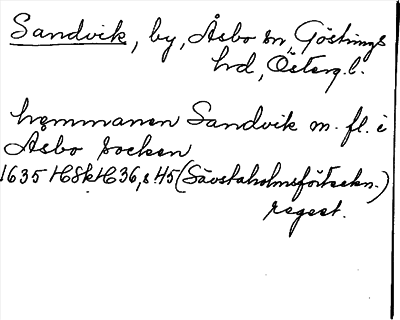 Sandvik, by, Åsbo sn, Göstrings
hd, Österg.l.
hemmanen Sandvik m. fl. i
Åsbo socken
1635 HSkH 36, s. 45 (Sävstaholmsförteckn.)
regest.